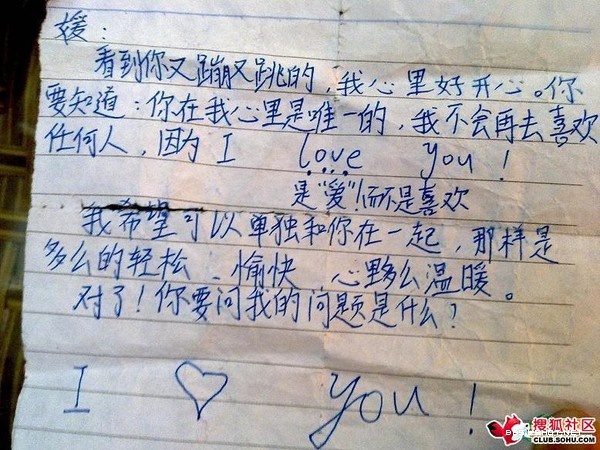 媛：
看到你又蹦又跳的，我心里好开心。你
要知道：你在我心里是唯一的，我不会再去喜欢
任何人，因为 I love you！
是“爱”！而不是喜欢
我希望可以单独和你在一起，那样是
多么的轻松、愉快 心里多么温暖。
对了！你要问我的问题是什么？
I ♡ you！
搜狐社区
CLUB.SOHU.COM